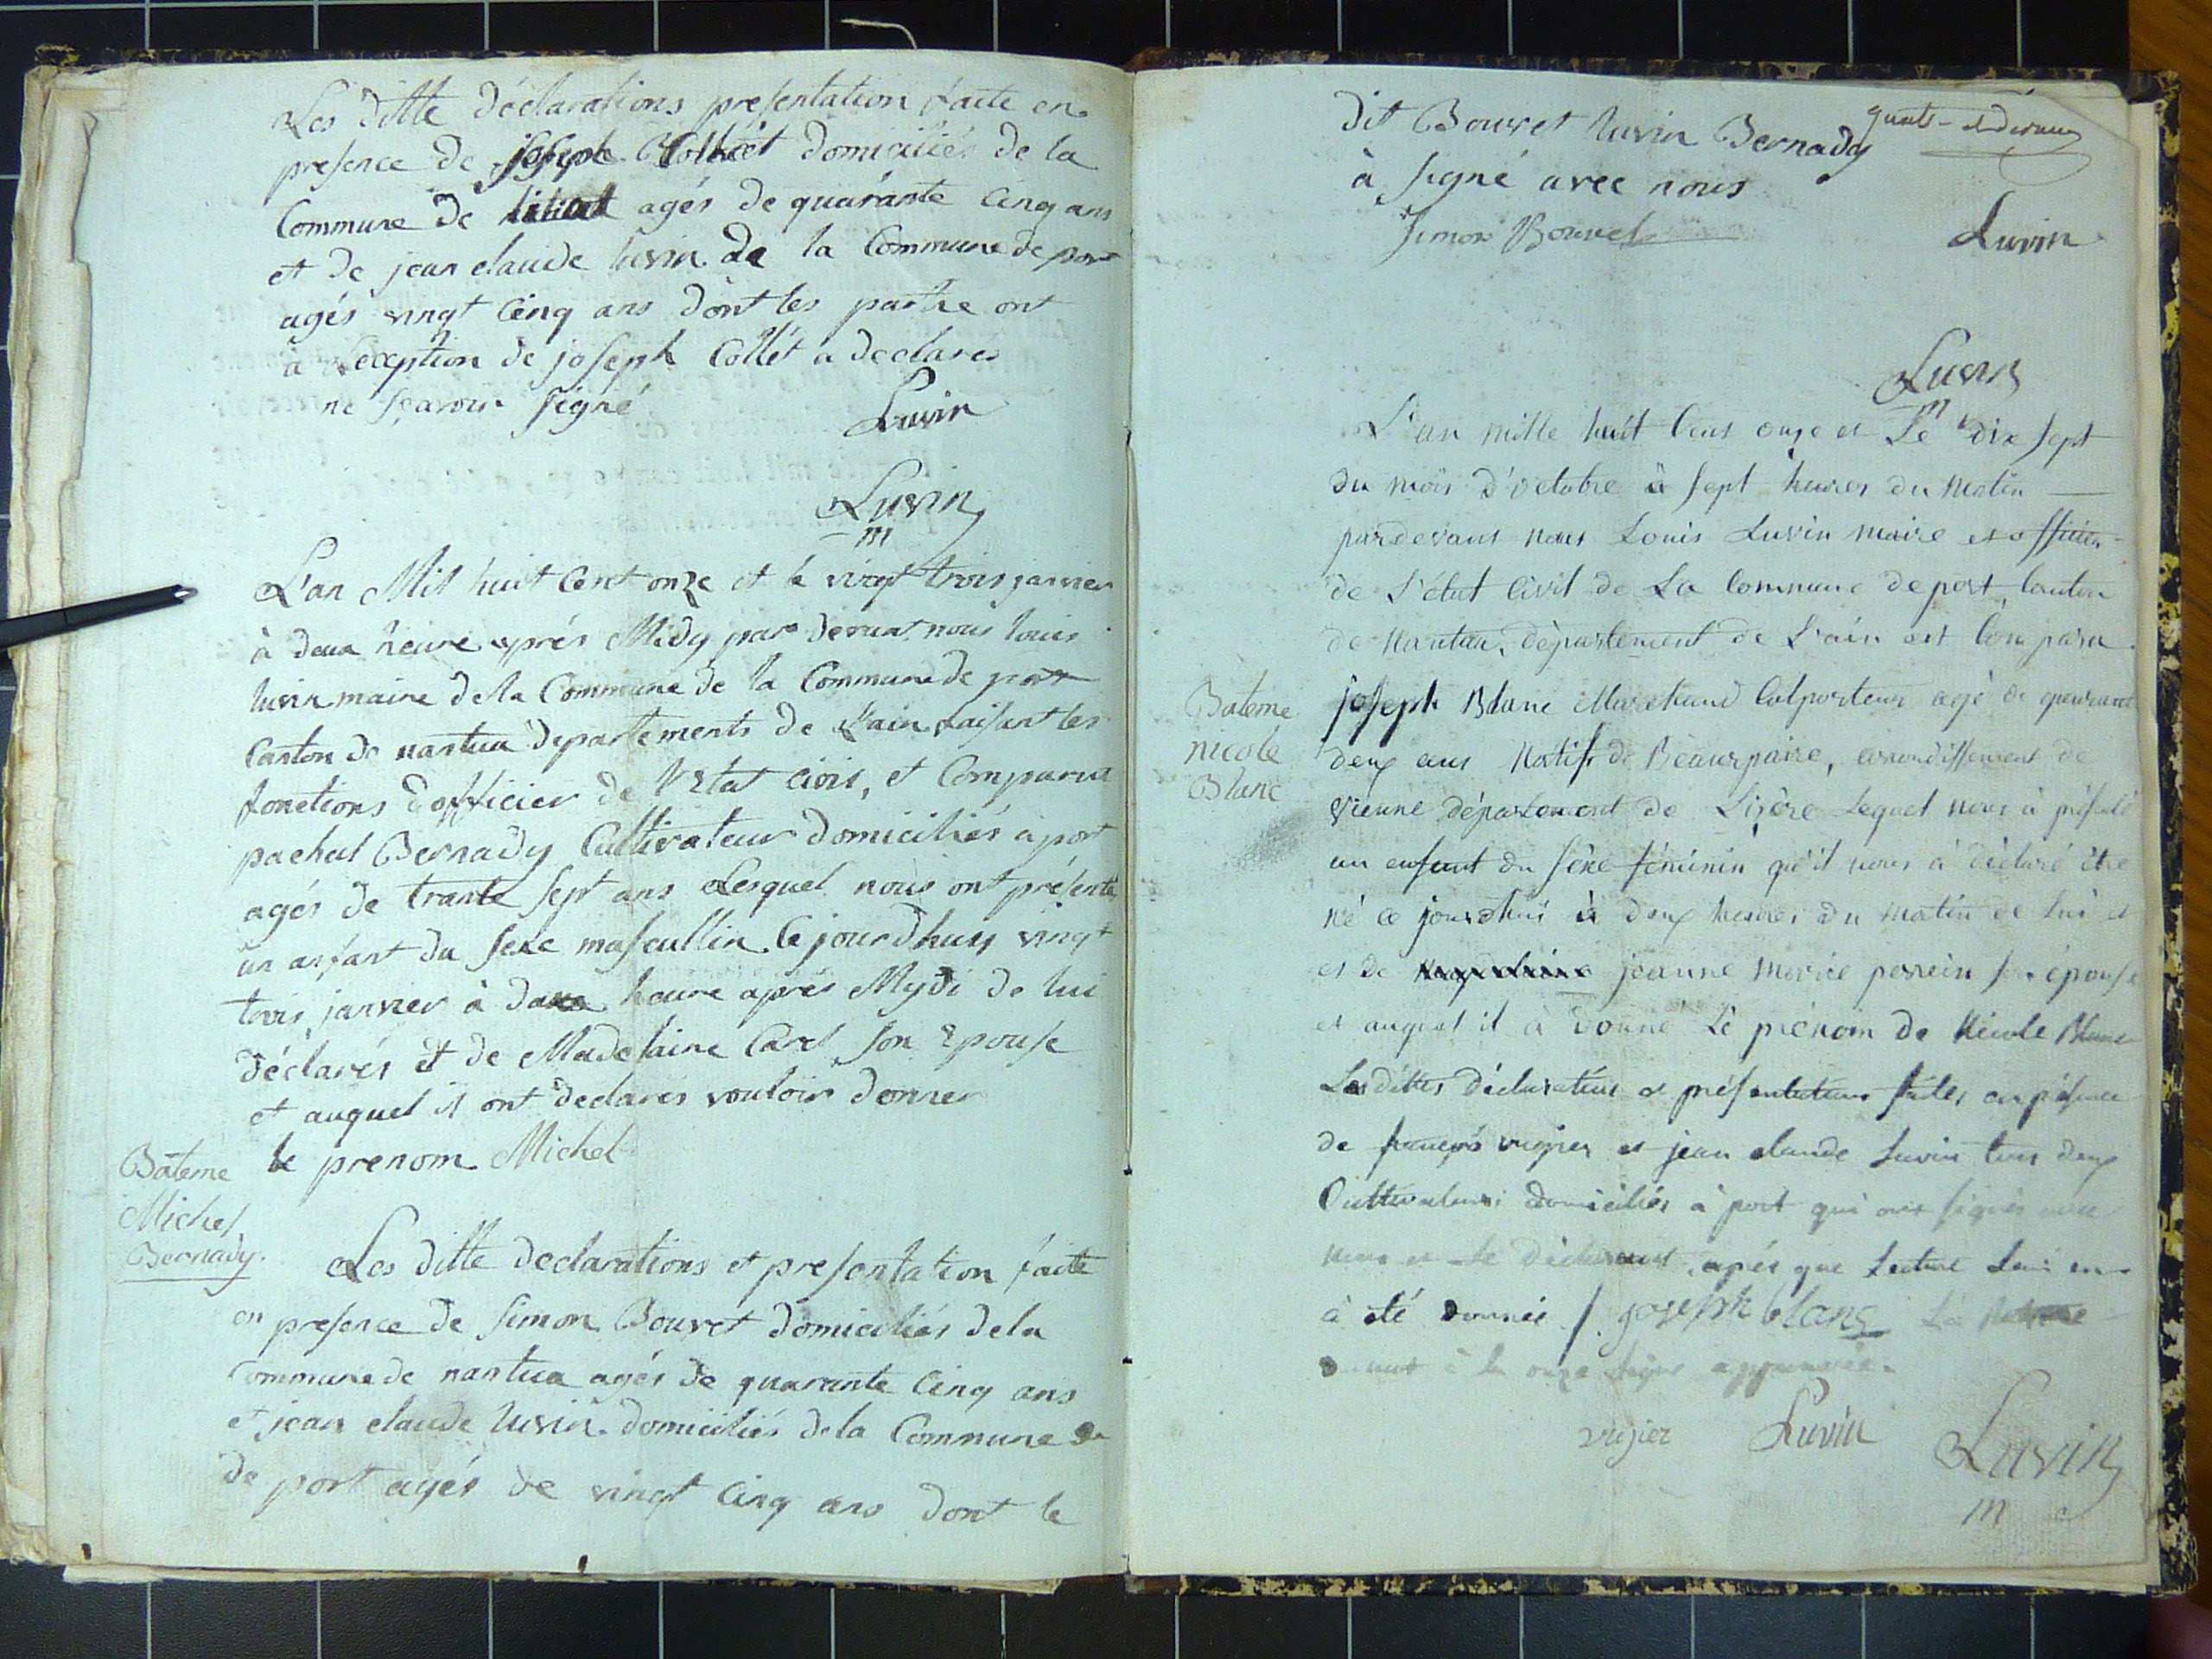 Les ditte déclarations presentation faite en
presence de joseph Collét domiciliés de la
Commune de agés de quarante cinq ans
et de jean claude luvin de la Commune de port
agés vingt cinq ans dont les partie ont
à lexception de joseph Collét a declares
ne sçavoir signé
Luvin
Luvin
m
L'an Mil huit Cent onze et le vingt trois janvier
à deux heure aprés Midy par devant nous louis
luvin maire de la Commune de la Commune de port
Canton de nantua departements de L'ain faisant les
fonctions d'officier de l'Etat civil, et Comparut
pachal Bernady Cultivateur domiciliés a port
agés de trante sept ans Lesquel nous ont présenté
un anfant du sexe mascullin ce jourdhuy vingt
trois janvier à deux heure aprés Mydi de lui
déclarés et de Madelaine Carel son Epouse
et auquel il ont declarés vouloir donner
le prenom Michel
Bateme
Michel
Bernady.
Les ditte declarations et presentation faite
en presence de simon Bouvét domiciliés de la
Commune de nantua agés de quarante cinq ans
et jean claude luvin domiciliés de la Commune de
de port agés de vingt cinq ans dont le
dit Bouvet luvin Bernady
à signé avec nous
Simon Bouvet
Luvin
Luvin
m
L'an mille huit Cent onze et Le dix sept
du mois d'octobre à sept heures du matin
pardevant nous Louis Luvin maire et officier
de L'état Civil de La Commune de port, Canton
de Nantua, département de L'ain est Comparu
Bateme
nicole
Blanc
joseph Blanc Marchand Colporteur agé de quarante
deux ans Natif de Beaurepaire, arrondissement de
Vienne département de Lisère Lequel nous à présenté
un enfant du sexe féminin qu'il nous à déclaré être
né ce jourdhui à deux heures du matin de lui et
et de jeanne Marie perrein son épouse
et auquel il à donné Le prénom de Nicole Blanc
Les dittes déclaration et présentation faites en présence
de françois vugier et jean claude Luvin tous deux
Cultivateurs domiciliés à port qui ont signés avec
nous et Le déclarant, après que Lecture Leur en
à été donnée /. joseph blanc
à la onze ligne approuvée.
vugier Luvin Luvin
m